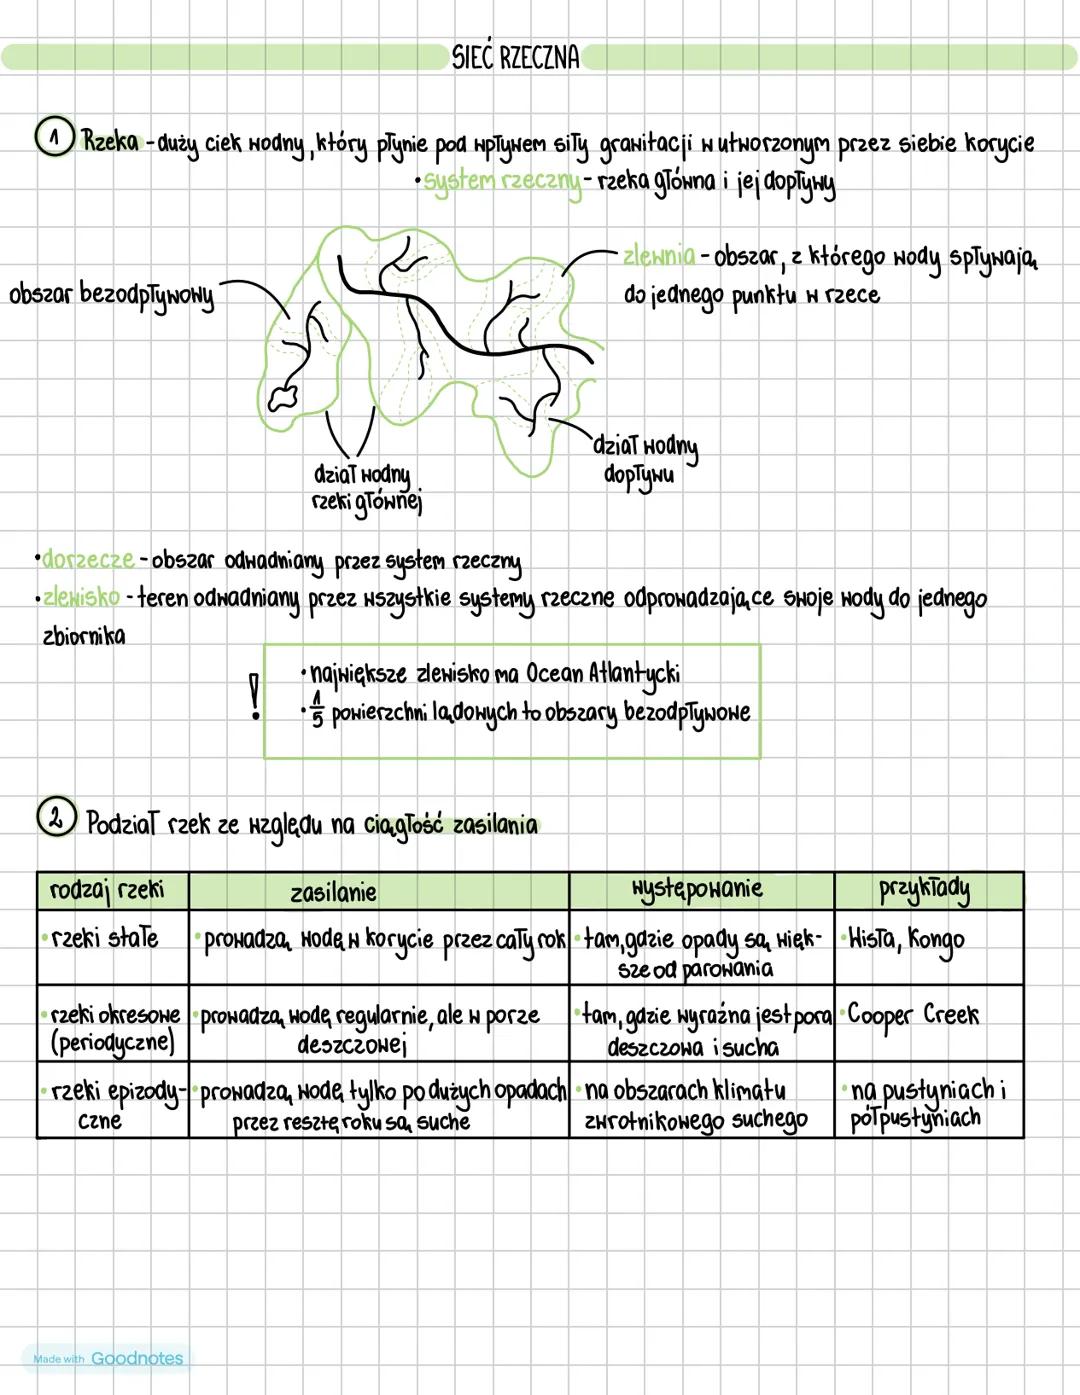 SIEĆ RZECZNA
1 Rzeka - duży ciek wodny, który płynie pod wpływem siły grawitacji w utworzonym przez siebie korycie
• system rzeczny - rzeka główna i jej dopływy
zlewnia - obszar, z którego wody spływają
do jednego punktu w rzece
obszar bezodpływowy
dział wodny
rzeki głównej
dział wodny
dopływu
• dorzecze - obszar odwadniany przez system rzeczny
• zlewisko - teren odwadniany przez wszystkie systemy rzeczne odprowadzające swoje wody do jednego
zbiornika
!
• największe zlewisko ma Ocean Atlantycki
• 1/5 powierzchni lądowych to obszary bezodpływowe
2 Podział rzek ze względu na ciągłość zasilania
rodzaj rzeki zasilanie występowanie przykłady
• rzeki stałe • prowadzą wodę w korycie przez cały rok • tam, gdzie opady są więk- • Wisła, Kongo
sze od parowania
• rzeki okresowe • prowadzą wodę regularnie, ale w porze • tam, gdzie wyraźna jest pora • Cooper Creek
(periodyczne) deszczowej deszczowa i sucha
• rzeki epizody- • prowadzą wodę tylko po dużych opadach • na obszarach klimatu • na pustyniach i
czne przez resztę roku są suche zwrotnikowego suchego półpustyniach
Made with Goodnotes